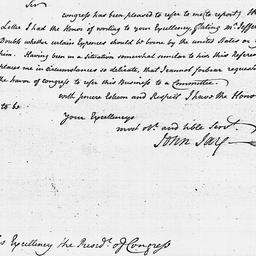 Sir
congress has been pleased to refer to me (to report) the
Letter I had the Honor of writing to your Excellency, stating Mr. Jeffe
Doubts whether certain Expences should be borne by the united States or
him. Having been in a Situation somewhat similar to his this Refere
places me in Circumstances so delicate, that I cannot forbear reques
the favor of congress to refer this Business to a Committee.
with sincere Esteem and Respect I have the Hono
to be
Your Excellency's
most obt. and hble Servt.
John Jay
is Excellency the Presidt. of Congress